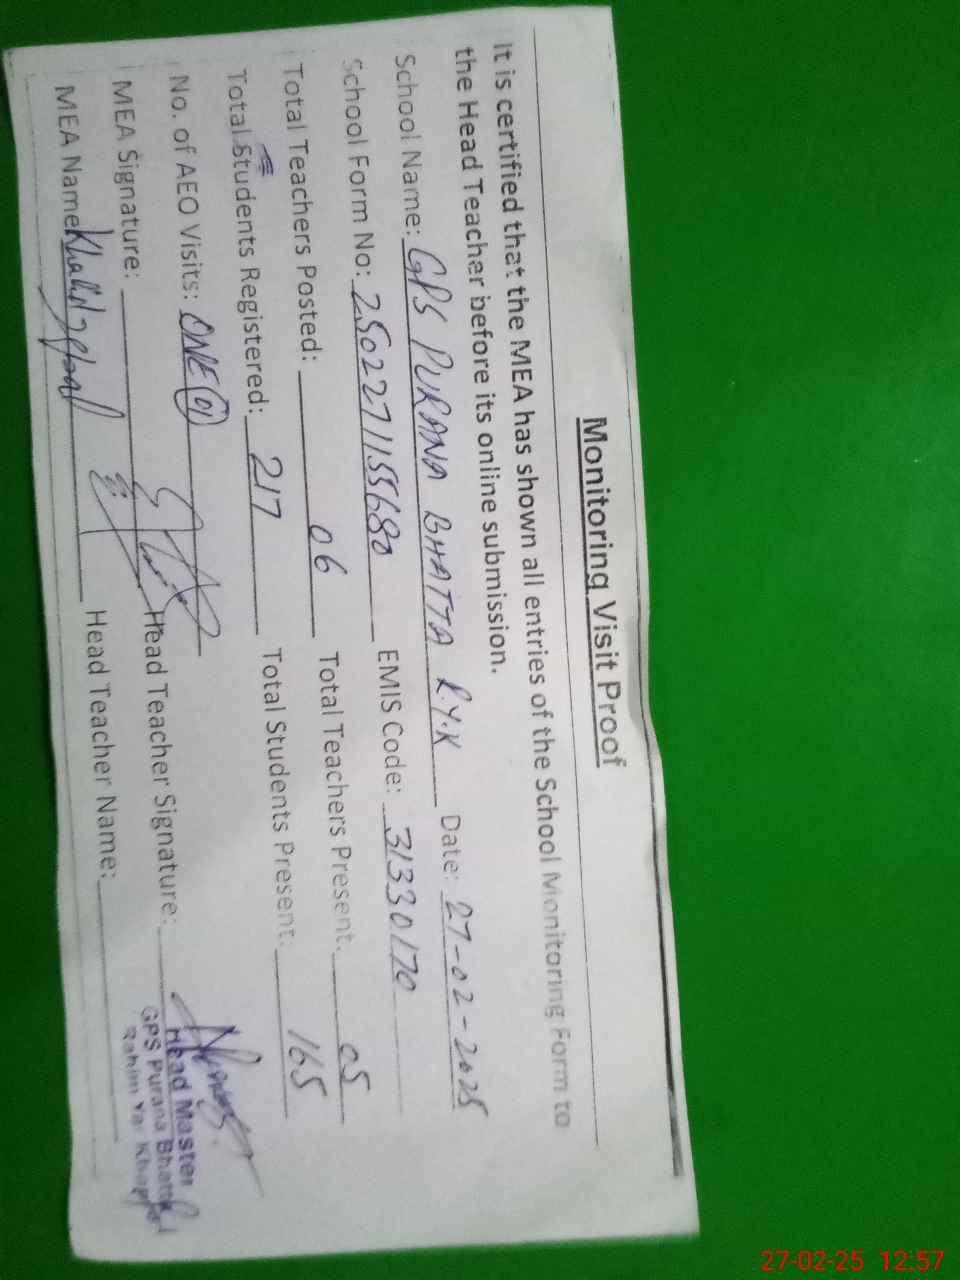 Monitoring Visit Proof
It is certified that the MEA has shown all entries of the School Monitoring Form to
the Head Teacher before its online submission.
School Name: GPS PURANA BHATTA R.Y.K Date: 27-02-2025
School Form No: 2502271155680 EMIS Code: 31330170
Total Teachers Posted: 06 Total Teachers Present: 05
Total Students Registered: 217 Total Students Present: 165
No. of AEO Visits: ONE (01)
MEA Signature: Head Teacher Signature:
MEA Name: Khalid Iqbal Head Teacher Name:
Head Master
GPS Purana Bhatta
Rahim Yar Khan
27-02-25 12:57